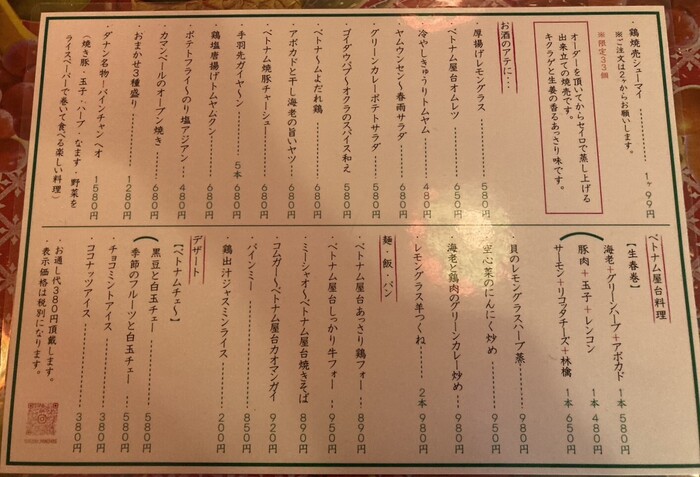 ・鶏焼売シューマイ…………1ヶ99円
※ご注文は2ヶからお願いします。
※限定33個
オーダーを頂いてからセイロで蒸し上げる
出来立ての焼売です。
キクラゲと生姜の香るあっさり味です。
お酒のアテに…
厚揚げレモングラス…………580円
ベトナム屋台オムレツ…………650円
冷やしきゅうりトムヤム…………480円
ヤムウンセン～春雨サラダ…………680円
グリーンカレーポテトサラダ…………580円
ゴイダウバプ～オクラのスパイス和え 580円
ベトナ～ムよだれ鶏…………680円
アボカドと干し海老の旨いヤツ…………680円
ベトナム焼豚チャーシュー…………680円
手羽先ガイヤ～ン…………5本680円
鶏塩唐揚げトムヤムクン…………680円
ポテトフライ～のり塩アジアン…………480円
カマンベールのオーブン焼き…………680円
おまかせ3種盛り…………1280円
ダナン名物～バインチャン ヘオ 1580円
(焼き豚・玉子・ハーブ・なます・野菜を
ライスペーパーで巻いて食べる楽しい料理)
ベトナム屋台料理
【生春巻】
海老+グリーンハーブ+アボカド 1本580円
豚肉+玉子+レンコン 1本480円
サーモン+リコッタチーズ+林檎 1本650円
貝のレモングラスハーブ蒸…………980円
空心菜のにんにく炒め…………950円
海老と鶏肉のグリーンカレー炒め…………980円
レモングラス羊つくね…………2本980円
麺・飯・パン
ベトナム屋台あっさり鶏フォー…………890円
ベトナム屋台しっかり牛フォー…………950円
ミーシャオ～ベトナム屋台焼きそば 890円
コムガ～ベトナム屋台カオマンガイ 920円
バインミー…………850円
鶏出汁ジャスミンライス…………200円
デザート
【ベトナムチェ～】
黒豆と白玉チェー…………580円
季節のフルーツと白玉チェー…………580円
チョコミントアイス…………380円
ココナッツアイス…………380円
・お通し代380円頂戴します。
・表示価格は税別になります。